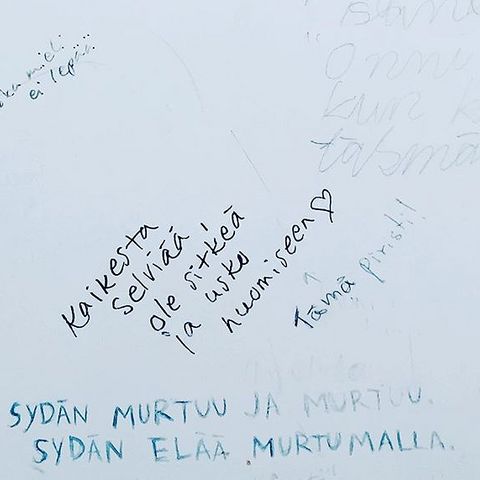 miel:...
ei lepää.
onn
kun k
täsmä
Kaikesta
selviää,
ole sitkeä
ja usko
huomiseen ♡
↑
Tämä piristi!
SYDÄN MURTUU JA MURTUU.
SYDÄN ELÄÄ MURTUMALLA.